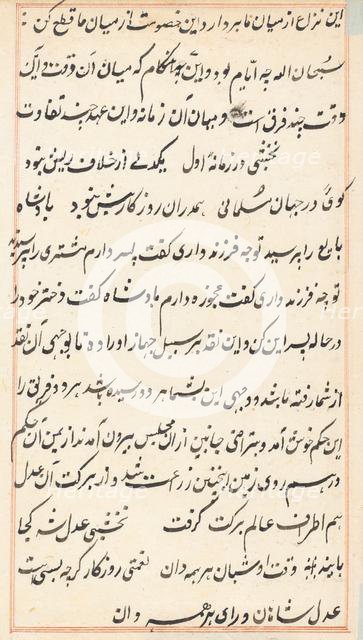 این نزاع از میان ما بردار و این خصومت از میان ما قطع کن
سبحان الله چه ایام بود و این چه هنگام که میان آن وقت و این
وقت چند فرق است و میان آن زمانه و این عهد چند تفاوت
نخشبی در زمانهٔ اول یکدلی از خلاف ریش نبود
کوئ در جهان مسلمانی همدران روزگار بیش نبود پادشاه
بایع را پرسید تو چه فرزند داری گفت پسر دارم مشتری را پرسید
تو چه فرزند داری گفت عجوزه دارم پادشاه گفت دختر خود را
در حاله پسر این کن و این نقد بر سبیل جهاز او را ده تا بوجهی آن نقد
از شما رفته باشد و وجهی این بشما هر دو رسیده باشد هر دو فریق را
این حکم خوش آمد و بتراضی جانبین ازان مجلس بیرون آمدند ازیمن آن حکم
در همه روی زمین اینچنین زراعت شد و از برکت آن عدل
هم اطراف عالم برکت گرفت نخشبی عدل شه کجا
یابند وقت او شبان هر همه دان نعمتی روزگار گرچه بسی است
عدل شاهان ورای هر همه دان
Heritage
Heritage
Heritage
Heritage